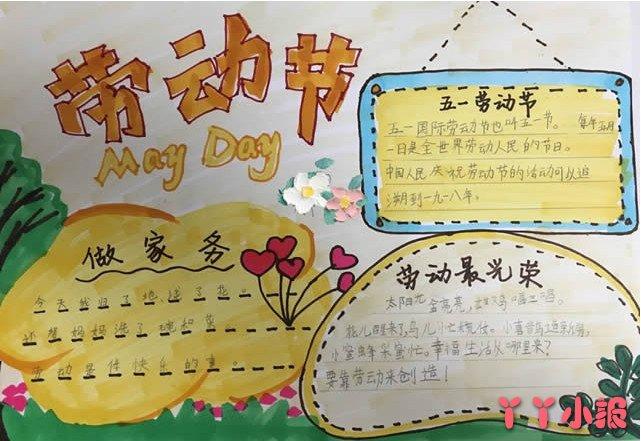 劳动节
May Day
五一劳动节
五一国际劳动节也叫五一节。每年五月
一日是全世界劳动人民的节日。
中国人民庆祝劳动节的活动可以追
溯到一九一八年。
做家务
今天我扫了地、浇了花。
还帮妈妈洗了碗和菜。
劳动是件快乐的事。
劳动最光荣
太阳光金亮亮，雄鸡唱三唱。
花儿醒来了，鸟儿忙梳妆。小喜鹊造新房，
小蜜蜂采蜜忙。幸福生活从哪里来？
要靠劳动来创造！
丫丫小报